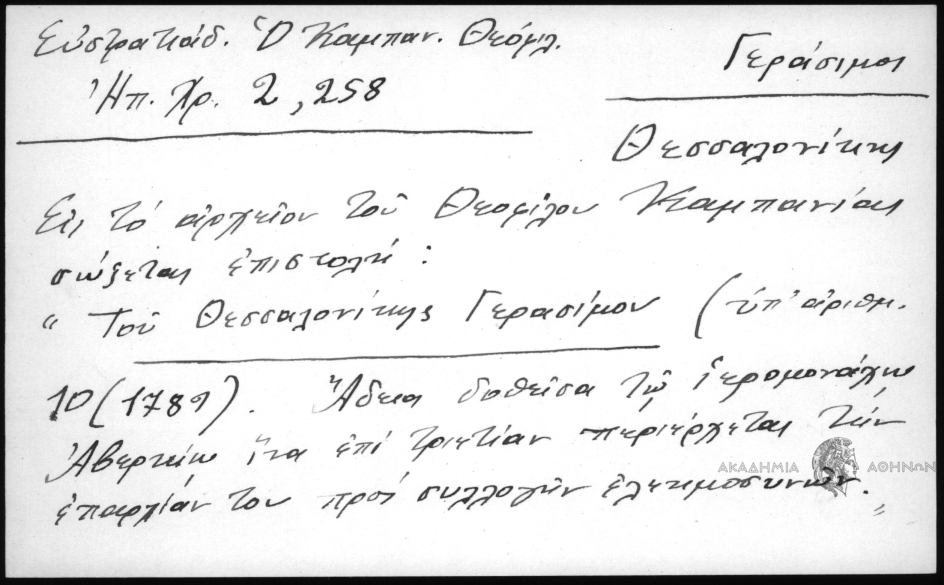 Εὐστρατιάδ. Ὁ Καμπαν. Θεόφιλ.
Ἠπ. Χρ. 2, 258
Γεράσιμος
Θεσσαλονίκης
Εἰς τὸ ἀρχεῖον τοῦ Θεοφίλου Καμπανίας
σώζεται ἐπιστολή :
“ Τοῦ Θεσσαλονίκης Γερασίμου (ὑπ' ἀριθμ.
10 (1789). Ἄδεια δοθεῖσα τῷ ἱερομονάχῳ
Ἀβερκίῳ ἵνα ἐπὶ τριετίαν περιέρχεται τὴν
ἐπαρχίαν του πρὸς συλλογὴν ἐλεημοσυνῶν. ”
ΑΚΑΔΗΜΙΑ ΑΘΗΝΩΝ